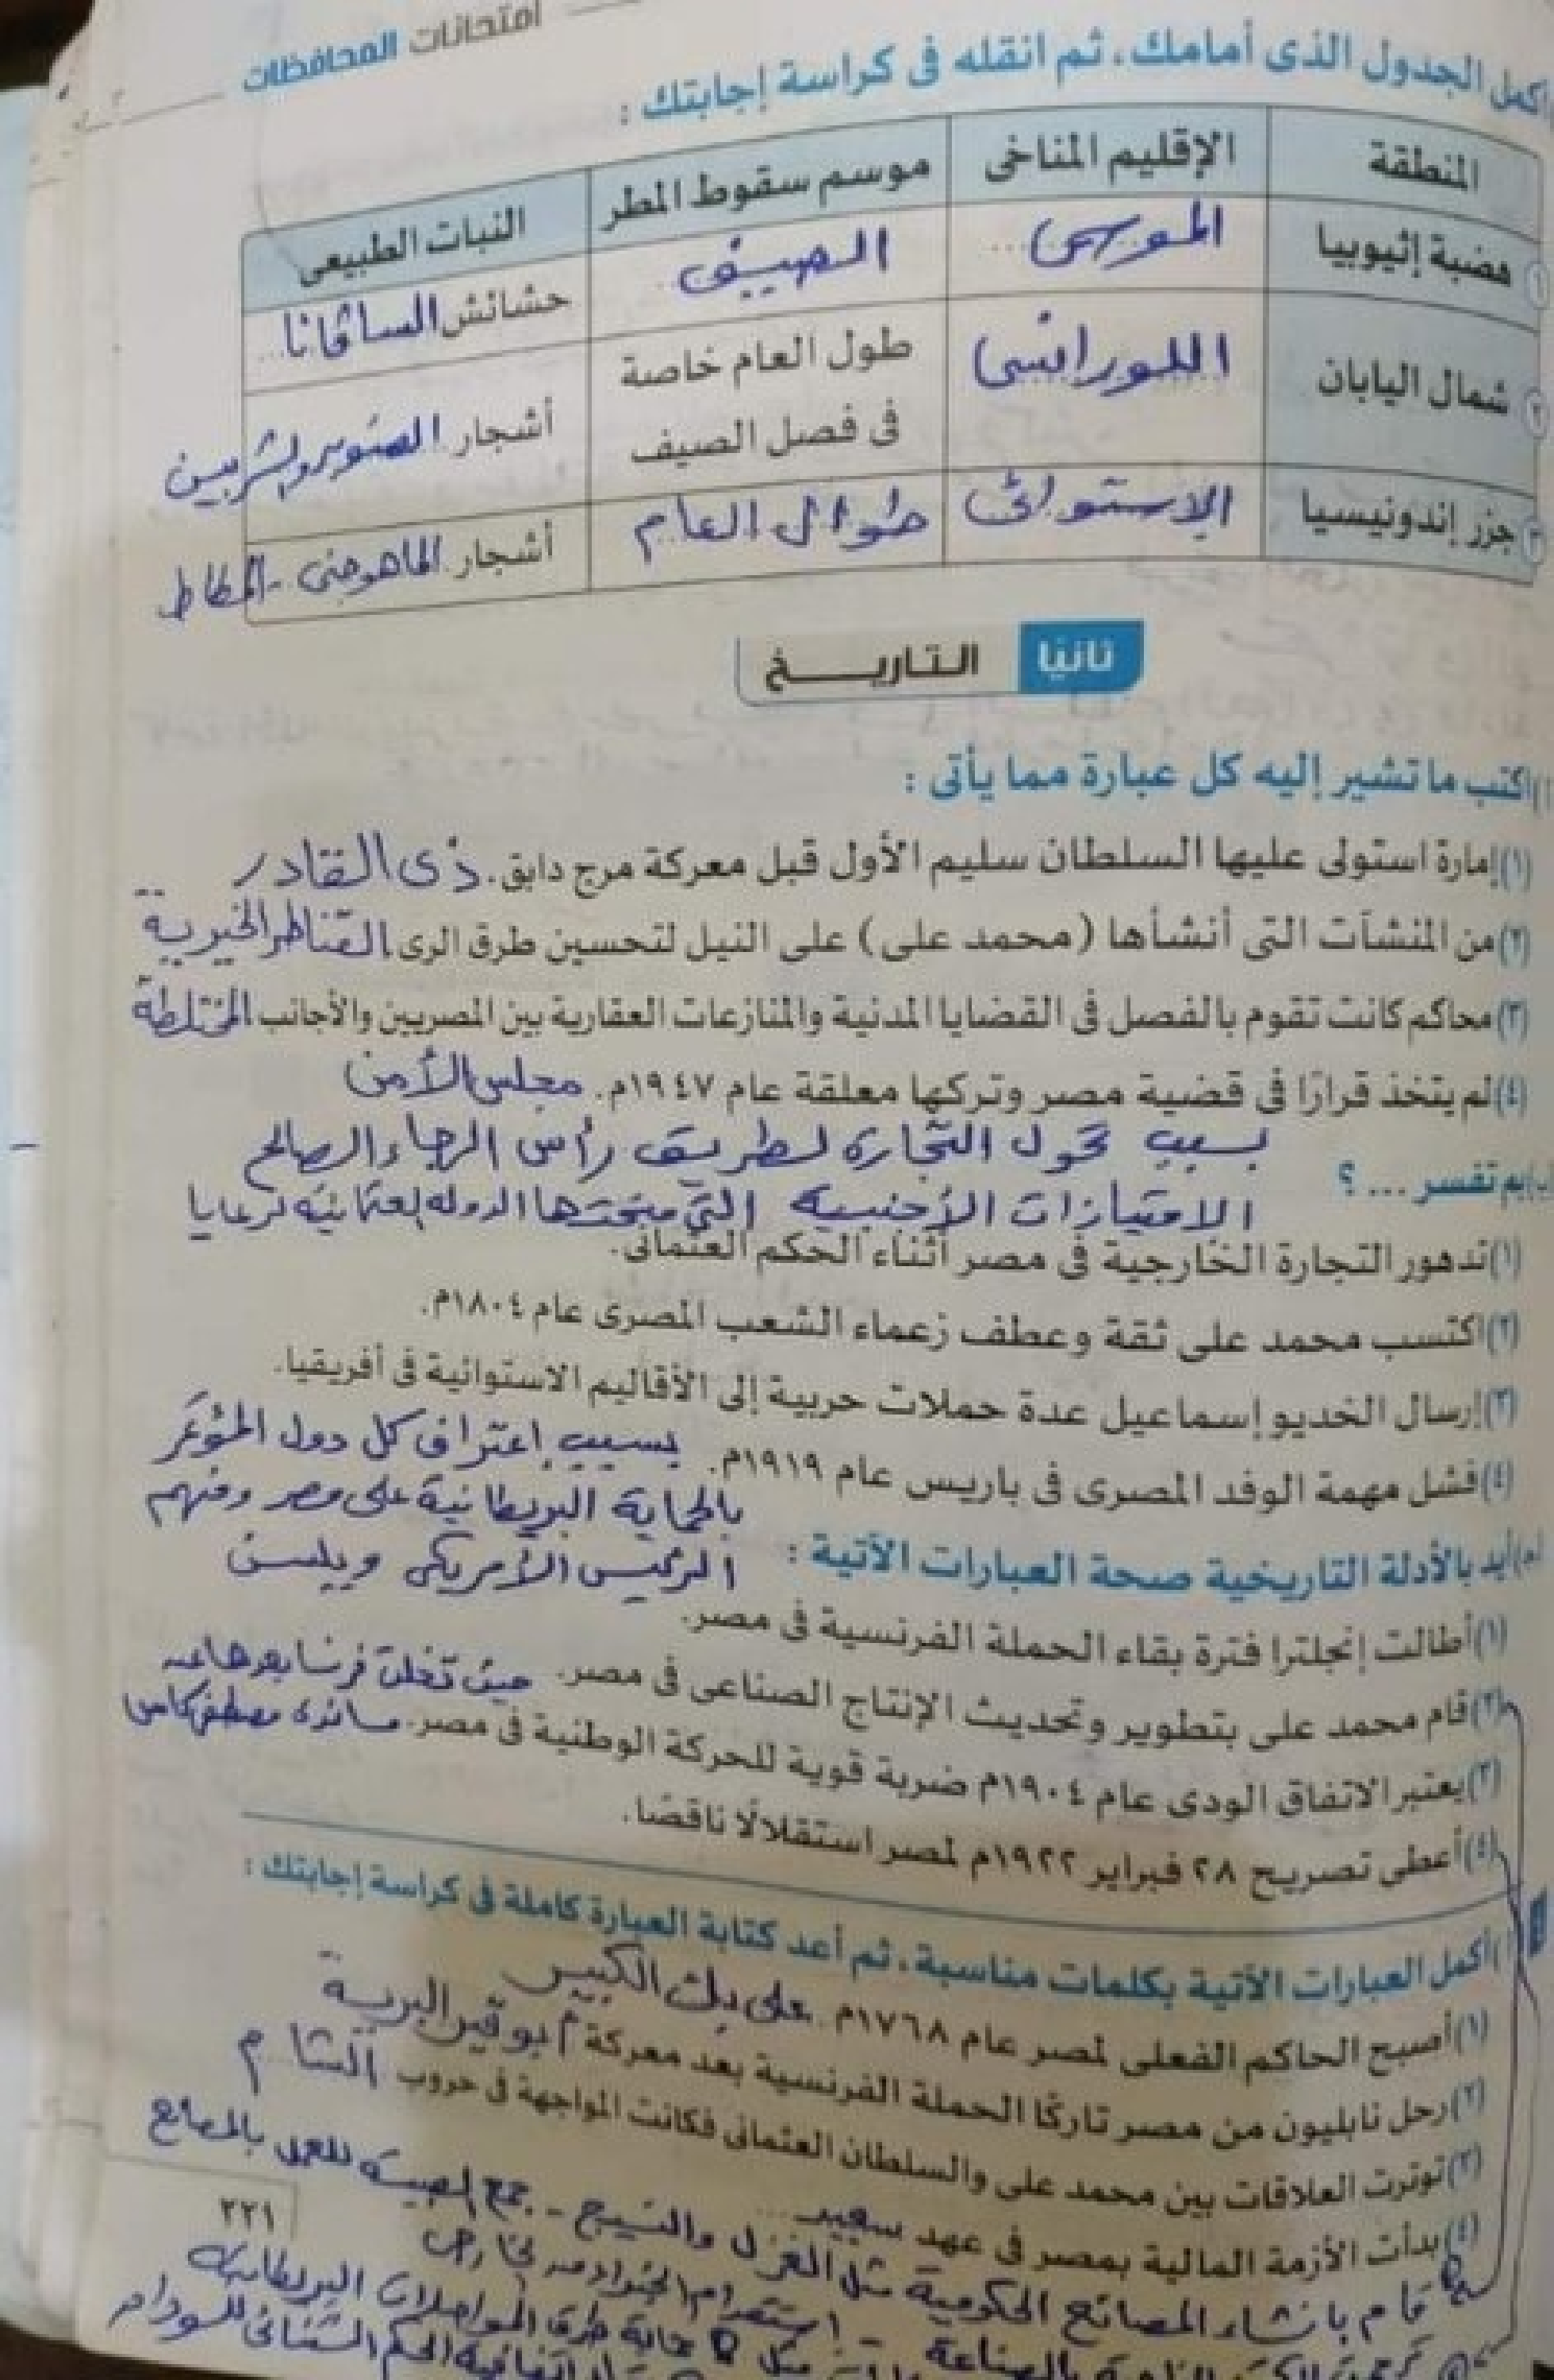 امتحانات المحافظات
أكمل الجدول الذى أمامك، ثم انقله فى كراسة إجابتك :
المنطقة الإقليم المناخى موسم سقوط المطر النبات الطبيعى
١ هضبة إثيوبيا الموسمى الصيف حشائش السافانا
٢ شمال اليابان اللورانسى طول العام خاصة فى فصل الصيف أشجار الصنوبر والشربين
٣ جزر إندونيسيا الاستوائى طوال العام أشجار الماهوجنى - المطاط
ثانيًا التاريــــخ
(أ) اكتب ما تشير إليه كل عبارة مما يأتى :
(١) إمارة استولى عليها السلطان سليم الأول قبل معركة مرج دابق. ذى القادر
(٢) من المنشآت التى أنشأها (محمد على) على النيل لتحسين طرق الرى القناطر الخيرية
(٣) محاكم كانت تقوم بالفصل فى القضايا المدنية والمنازعات العقارية بين المصريين والأجانب المختلطة
(٤) لم يتخذ قرارًا فى قضية مصر وتركها معلقة عام ١٩٤٧م. مجلس الأمن
بسبب تحول التجارة لطريق رأس الرجاء الصالح
(ب) بم تفسر ... ؟
الامتيازات الأجنبية التى منحتها الدولة العثمانية لرعايا
(١) تدهور التجارة الخارجية فى مصر أثناء الحكم العثمانى.
(٢) اكتسب محمد على ثقة وعطف زعماء الشعب المصرى عام ١٨٠٤م.
(٣) إرسال الخديو إسماعيل عدة حملات حربية إلى الأقاليم الاستوائية فى أفريقيا.
(٤) فشل مهمة الوفد المصرى فى باريس عام ١٩١٩م. بسبب إعتراف كل دول المؤتمر
بالحماية البريطانية على مصر ومنهم
الرئيس الأمريكى ويلسن
(ج) أيد بالأدلة التاريخية صحة العبارات الآتية :
(١) أطالت إنجلترا فترة بقاء الحملة الفرنسية فى مصر.
(٢) قام محمد على بتطوير وتحديث الإنتاج الصناعى فى مصر.
حيث تخلت فرنسا بعدها عن
(٣) يعتبر الاتفاق الودى عام ١٩٠٤م ضربة قوية للحركة الوطنية فى مصر. مساندة مصطفى كامل
(٤) أعطى تصريح ٢٨ فبراير ١٩٢٢م لمصر استقلالًا ناقصًا.
(أ) أكمل العبارات الآتية بكلمات مناسبة، ثم أعد كتابة العبارة كاملة فى كراسة إجابتك :
(١) أصبح الحاكم الفعلى لمصر عام ١٧٦٨م. على بك الكبير
(٢) رحل نابليون من مصر تاركًا الحملة الفرنسية بعد معركة أبو قير البرية
(٣) توترت العلاقات بين محمد على والسلطان العثمانى فكانت المواجهة فى حروب الشام
(٤) بدأت الأزمة المالية بمصر فى عهد سعيد
قام بانشاء المصانع الحكومية مثل الغزل والنسيج - جمع الصبية للعمل بالمصانع
استقدام الخبراء من الخارج
حماية طرق المواصلات البريطانية
اتفاقية الحكم الثنائى للسودان
٢٢١